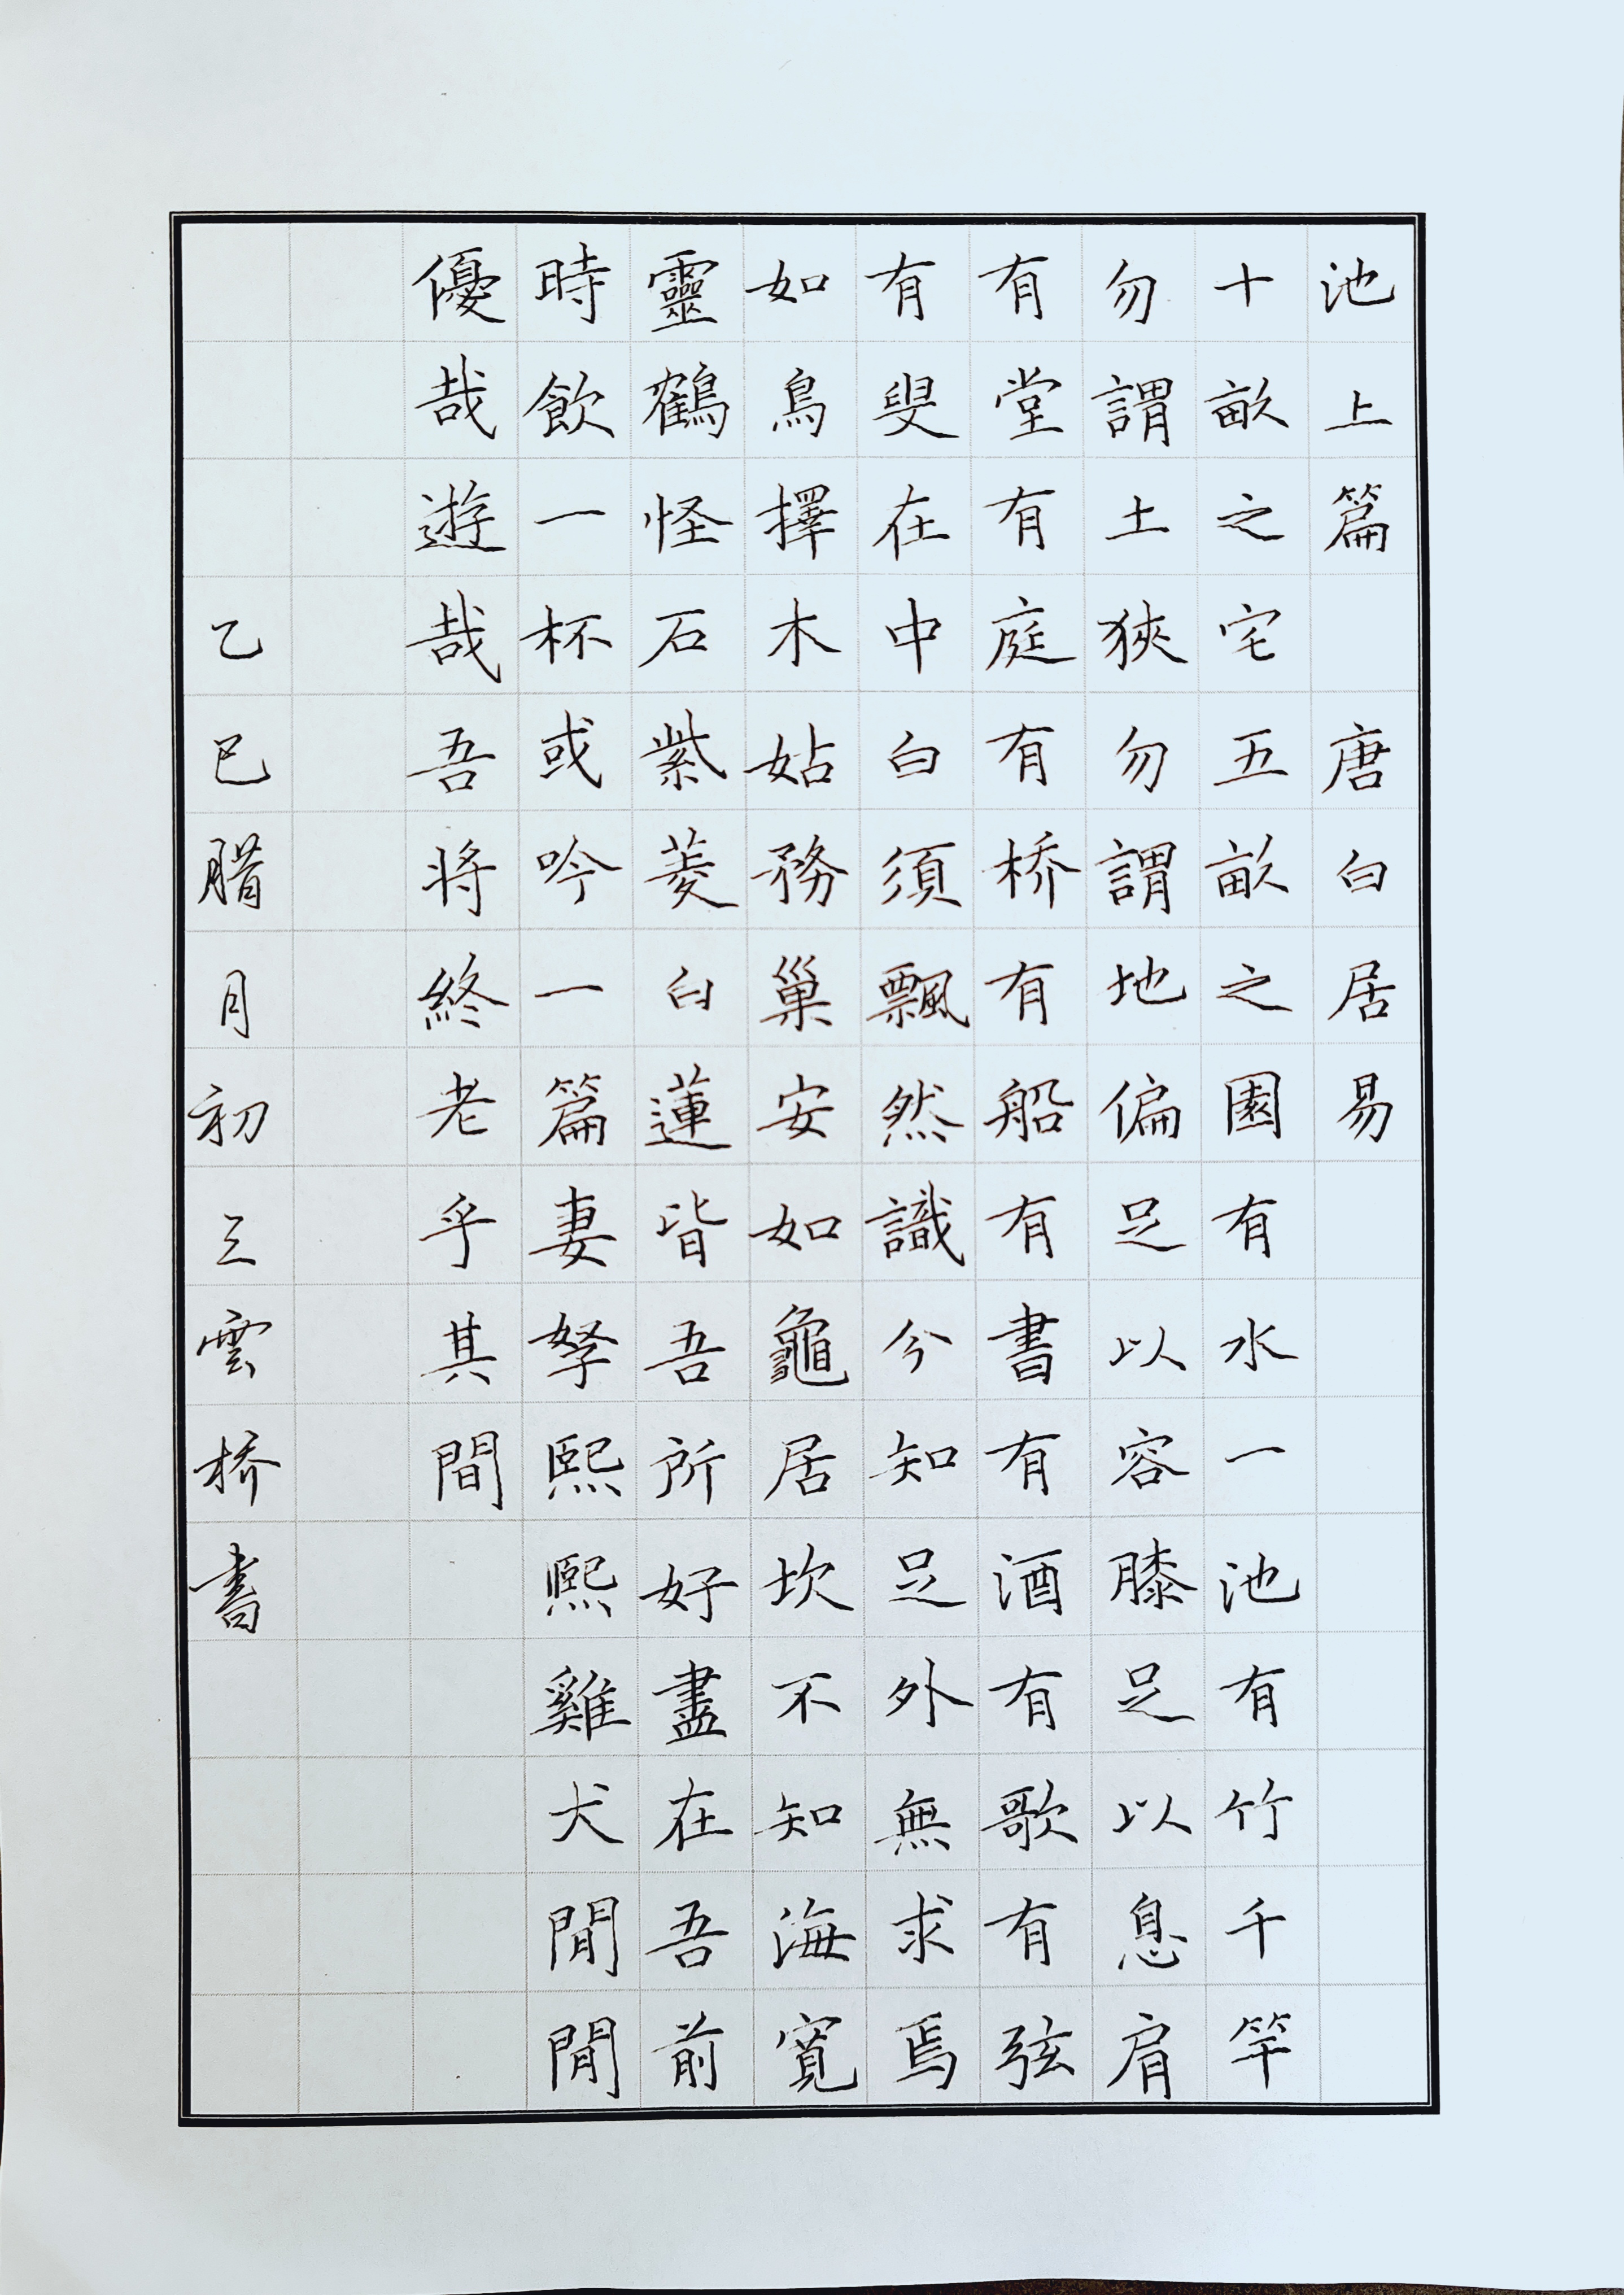 池上篇 唐白居易
十畝之宅五畝之園有水一池有竹千竿
勿謂土狹勿謂地偏足以容膝足以息肩
有堂有庭有桥有船有書有酒有歌有弦
有叟在中白須飄然識兮知足外無求焉
如鳥擇木姑務巢安如龜居坎不知海寬
靈鶴怪石紫菱白蓮皆吾所好盡在吾前
時飲一杯或吟一篇妻孥熙熙雞犬閒閒
優哉遊哉吾将終老乎其間
乙巳腊月初三雲桥書